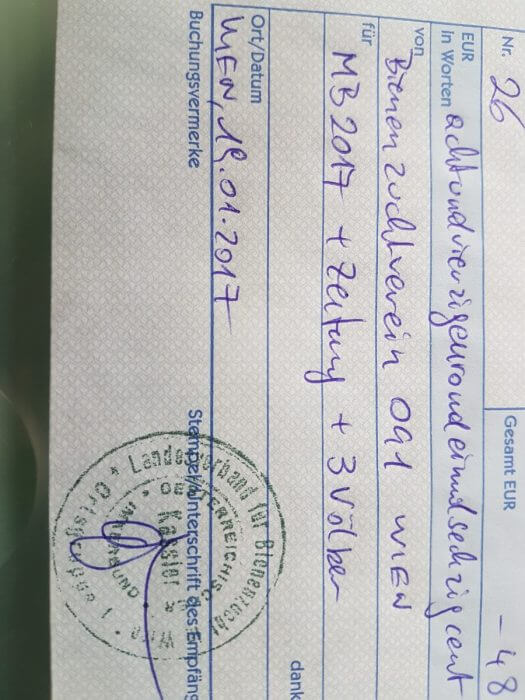 Nr. 26
Gesamt EUR - 48
EUR
in Worten achtundvierzigeuroundeinundsechzigcent
von
Bienenzuchtverein 091 WIEN
für
MB 2017 + Zeitung + 3 Völker
dank
Ort/Datum
WIEN, 19.01.2017
Buchungsvermerke
Stempel/Unterschrift des Empfäng
Landesverband für Bienenzucht
Kassier
Ortsgruppe